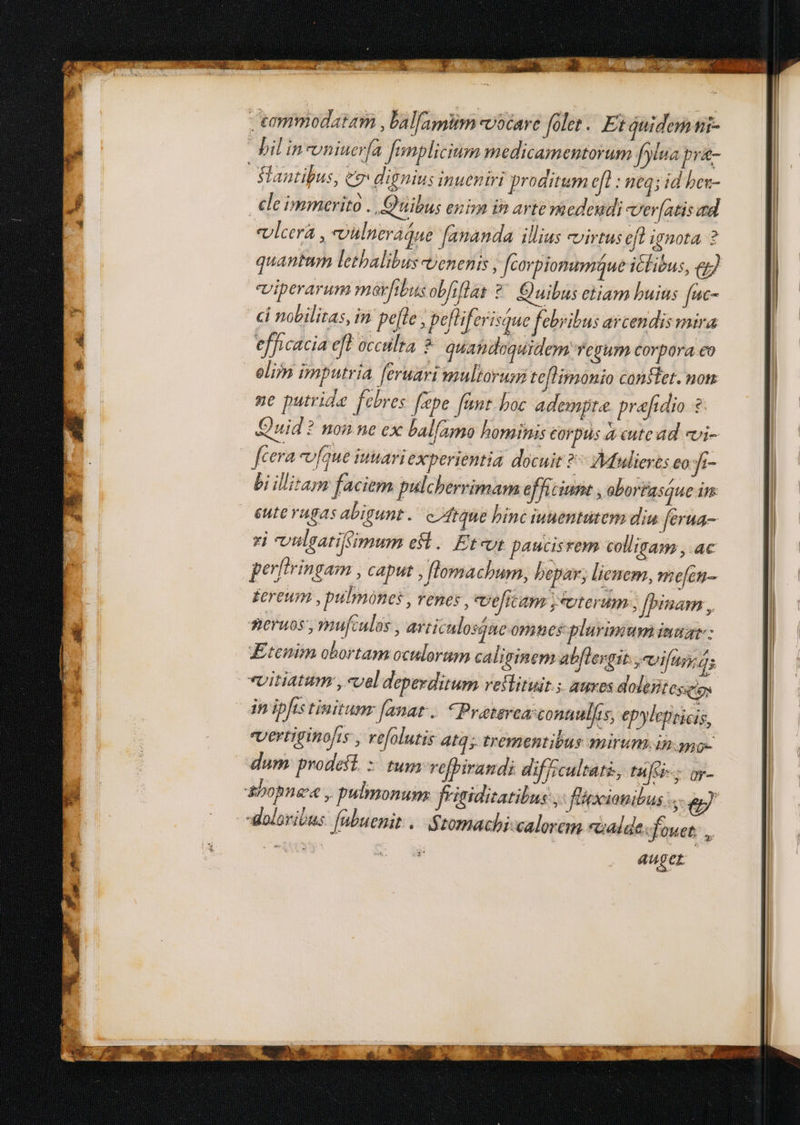 commodatam, balſamùm vocare ſolet. Et quidem ni-
hil in vniuerſa ſimplicium medicamentorum ſylua præ-
ſtantibus, & dignius inueniri proditum eſt: neq; id her-
cle immeritò. Quibus enim in arte medendi verſatis ad
vlcera, vulneráque ſananda illius virtus eſt ignota?
quantum lethalibus venenis, ſcorpionumq́ue ictibus, &
viperarum morſibus obſiſtat? Quibus etiam huius ſuc-
ci nobilitas, in peſte, peſtiferisq́ue febribus arcendis mira
efficacia eſt occulta? quandoquidem regum corpora eo
olim imputria ſeruari multorum teſtimonio conſtet. non
ne putridæ febres ſæpe ſunt hoc adempta præſidio?
Quid? non ne ex balſamo hominis corpus à cute ad vi-
ſcera vſque iuuari experientia docuit? Mulieres eo ſi-
bi illitam faciem pulcherrimam efficiunt, obortasq́ue in
cute rugas abigunt. Atque hinc iuuentutem diu ſerua-
ri vulgatiſsimum eſt. Et vt paucis rem colligam, ac
perſtringam, caput, ſtomachum, hepar, lienem, meſen-
tereum, pulmones, renes, veſicam, vterum, ſpinam,
neruos, muſculos, articulosq́ue omnes plurimum iuuat:
Etenim obortam oculorum caliginem abſtergit, viſumq́;
vitiatum, vel deperditum reſtituit; aures dolentes, &
in ipſis tinitum ſanat. Præterea conuulſis, epylepticis,
vertiginoſis, reſolutis atq; trementibus mirum in mo-
dum prodeſt: tum reſpirandi difficultati, tuſsi, or-
thopnææ, pulmonum frigiditatibus, fluxionibus, &
doloribus ſubuenit. Stomachi calorem valde fouet,
auget